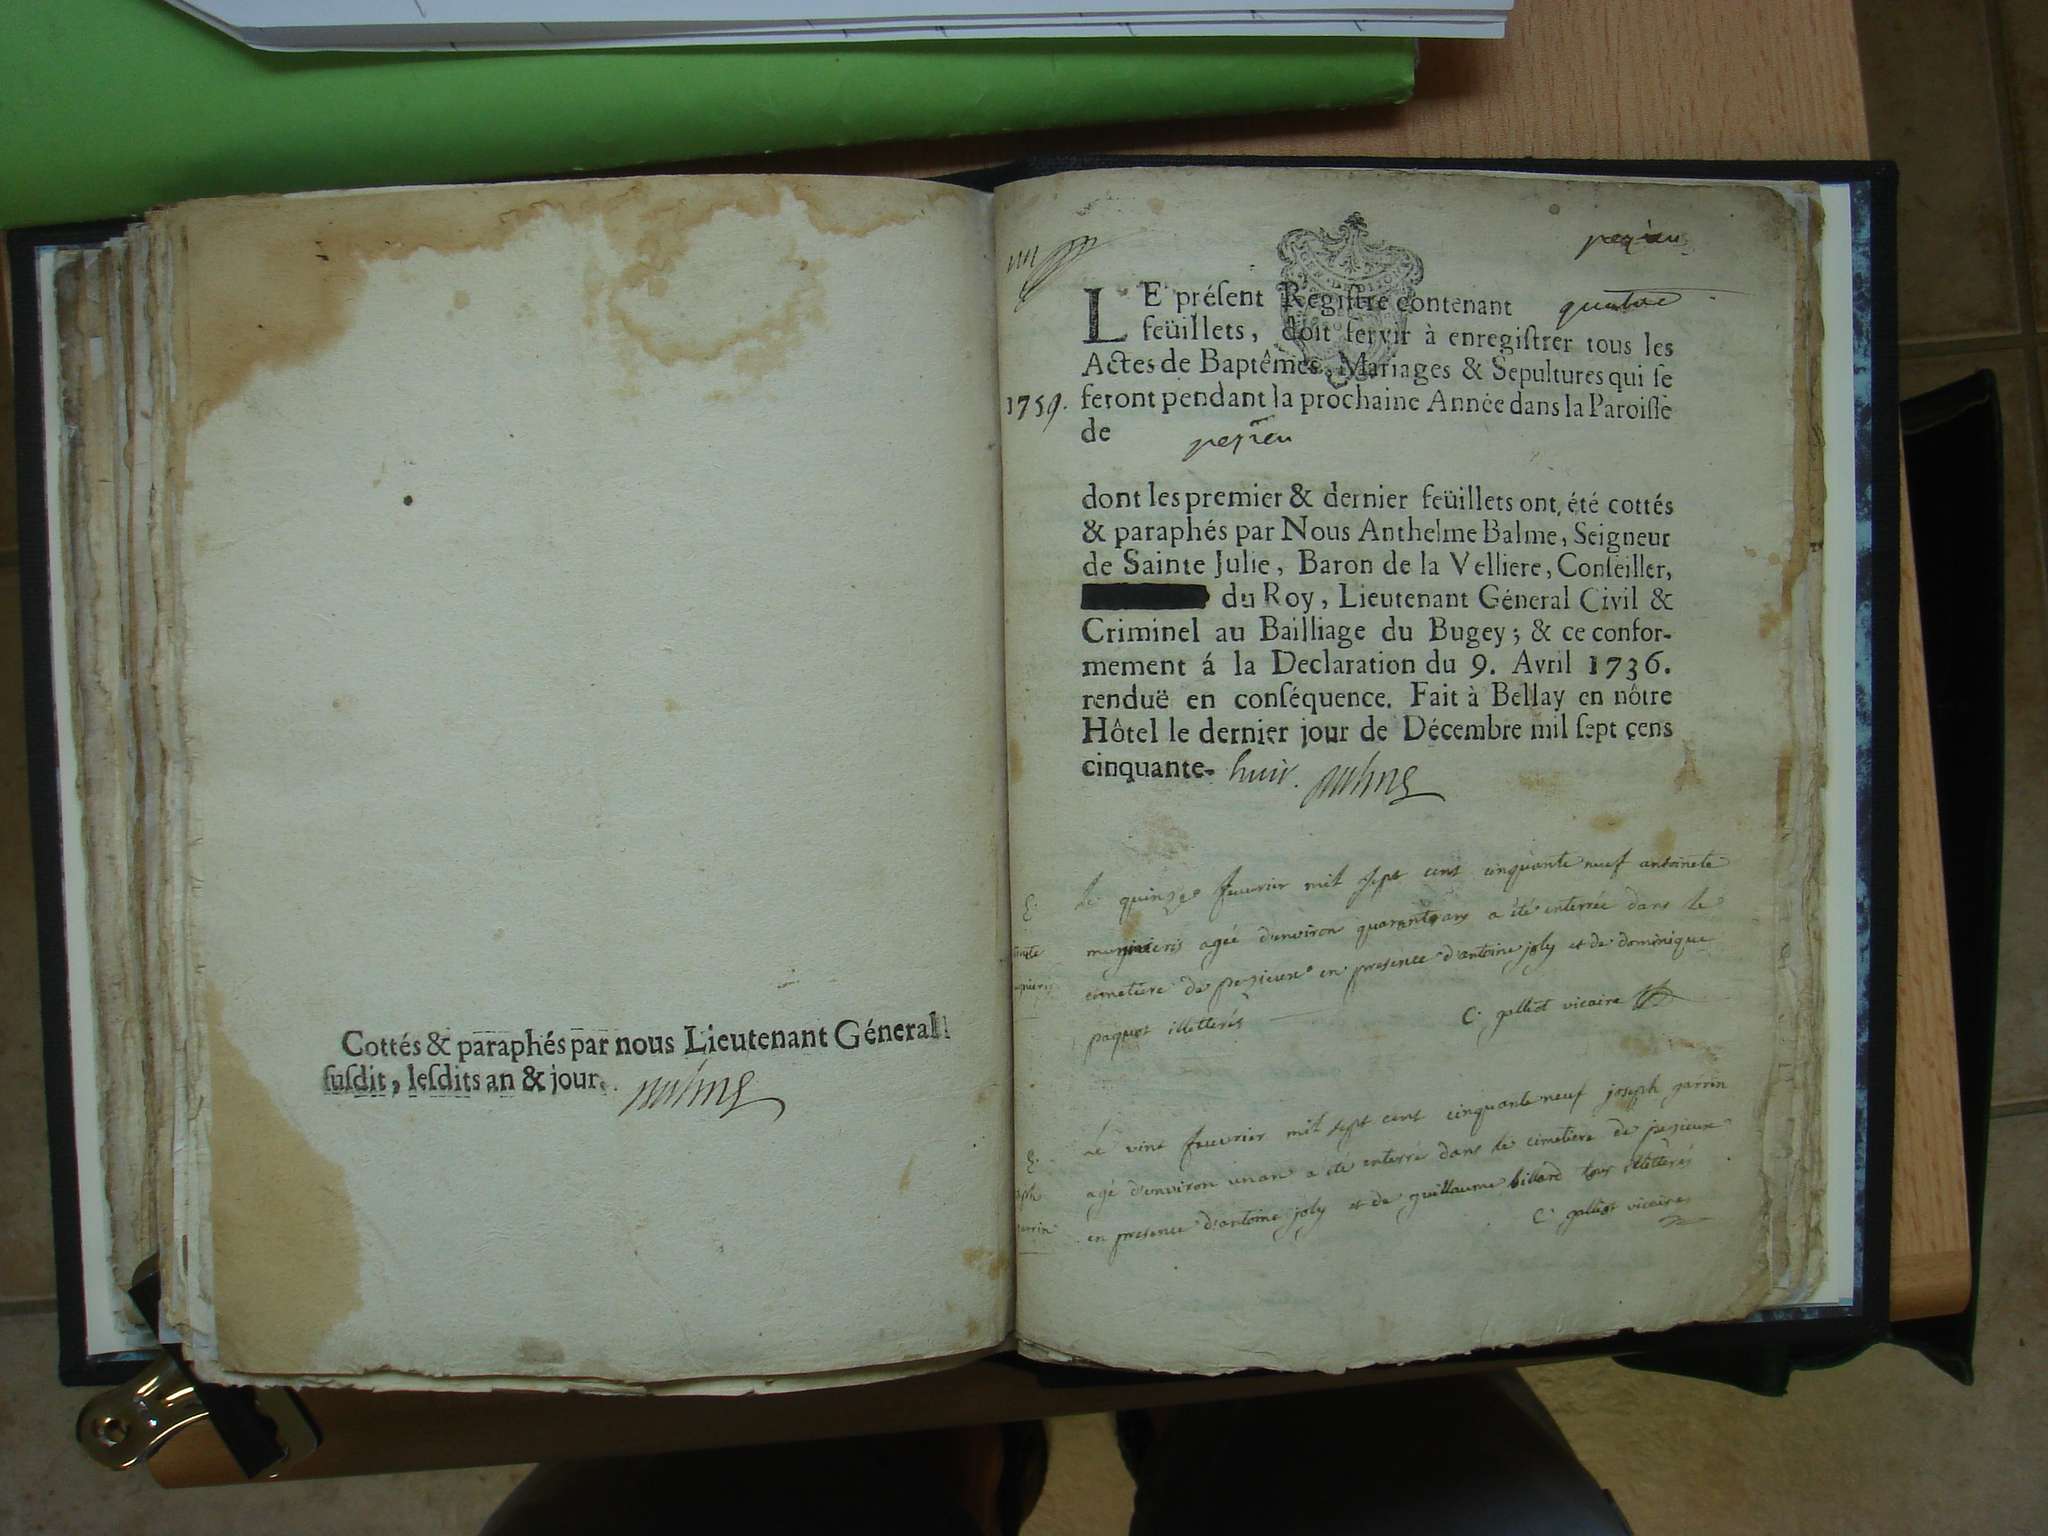 Cottés & paraphés par nous Lieutenant Géneral
susdit, lesdits an & jour.
pezieu
LE présent Registre contenant quatre
feüillets, doit servir à enregistrer tous les
Actes de Baptêmes, Mariages & Sepultures qui se
1759. feront pendant la prochaine Année dans la Paroisse
de pezieu
dont les premier & dernier feüillets ont été cottés
& paraphés par Nous Anthelme Balme, Seigneur
de Sainte Julie, Baron de la Velliere, Conseiller,
du Roy, Lieutenant Géneral Civil &
Criminel au Bailliage du Bugey; & ce confor-
mement á la Declaration du 9. Avril 1736.
renduë en conséquence. Fait à Bellay en nôtre
Hôtel le dernier jour de Décembre mil sept cens
cinquante- huit.
Le quinze feuvrier mil sept cent cinquante neuf antoinete
agée d'environ quarante ans a été enterrée dans le
cimetiere de pezieux en presence d'antoine joly et de dominique
paquet illetterés
C. galliot vicaire
Le vint feuvrier mil sept cent cinquante neuf joseph garrin
agé d'environ un an a été enterré dans le cimetiere de pezieux
en presence d'antoine joly et de guillaume billard tous illetterés
C. galliot vicaire